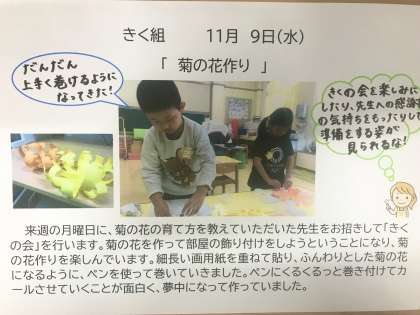 きく組　11月 9日(水)
「 菊の花作り 」
だんだん
上手く巻けるように
なってきた！
きくの会を楽しみに
したり、先生への感謝
の気持ちをもったりして
準備をする姿が
見られるな！
来週の月曜日に、菊の花の育て方を教えていただいた先生をお招きして「きく
の会」を行います。菊の花を作って部屋の飾り付けをしようということになり、菊
の花作りを楽しんでいます。細長い画用紙を重ねて貼り、ふんわりとした菊の花
になるように、ペンを使って巻いていきました。ペンにくるくるっと巻き付けてカ
ールさせていくことが面白く、夢中になって作っていました。